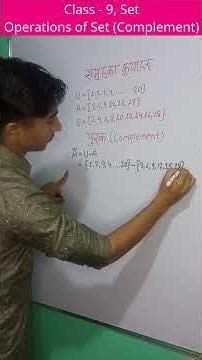 Class - 9, Set
Operations of Set (Complement)
समूहका क्रियाहरू
U = {1,2,3,4, ... 20}
A = {3,6,9,12,15,18}
B = {2,4,6,8,10,12,14,16,18}
पूरक (Complement)
A̅ = U-A
= {1,2,3,4, ... 20} - {3,6,9,12,15,18}